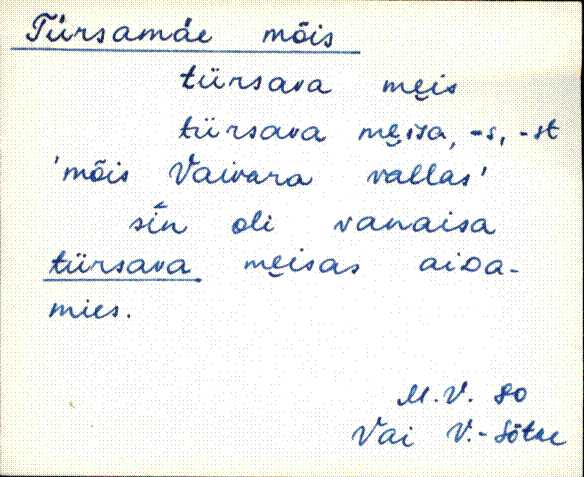 Türsamäe mõis
türsava mẹis
türsava mẹisa, -s, -st
'mõis Vaivara vallas'
sīn oli vanaisa
türsava mẹisas aiDa-
mies.
M.V. 80
Vai V.-Sõtke